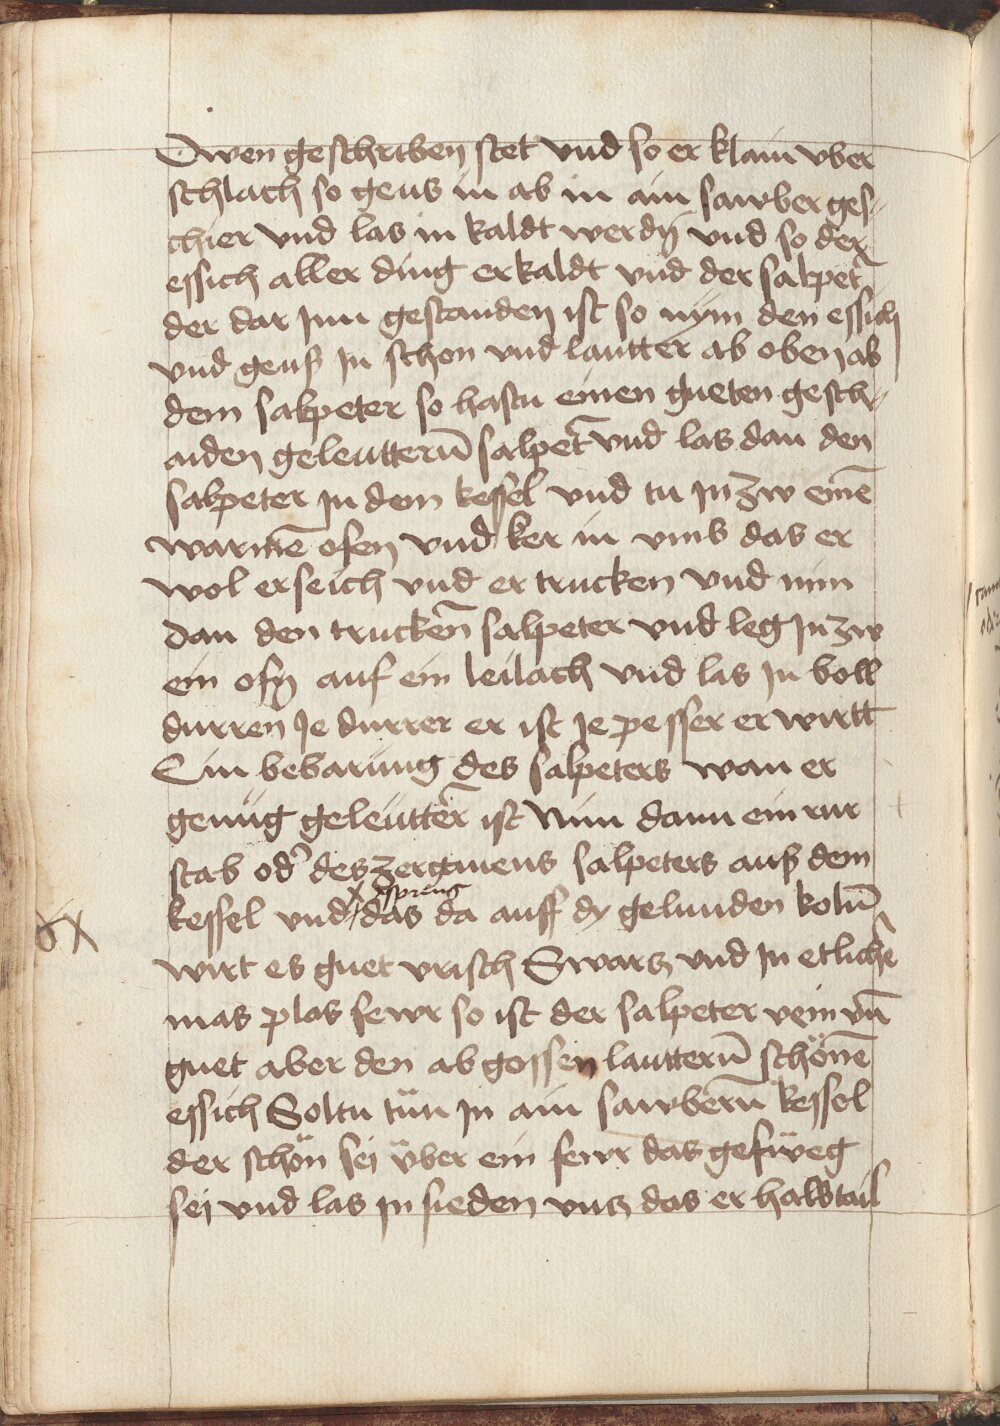 Owen geschriben stet vnd so er klain vber
schlach so geus in ab in ain sawber ges-
chier vnd las in kaldt werdn̄ vnd so der
essich aller ding erkaldt vnd der salpet̄
der dar jnn gestanden ist so nym den essich
vnd geuß jn schon vnd lautter ab oben ab
dem salpeter so hastu einen gueten gesch-
aiden geleutterū salpet̄ vnd las dan den
salpeter jn dem kessel vnd tu jn zw einē
warmē ofen vnd ker in vmb das er
wol erseich vnd er trucken vnd nim
dan den truckēn salpeter vnd leg jn zw
ein ofn̄ auf ein leilach vnd las jn woll
durren Je durrer er ist Je pesser er wirtt
Ein bebarung des salpeters wan er
genüg geleüttēr ist Nim dann ein rur
stab od' des zergenens salpeters auß dem
spreng
kessel vnd das da auff dy gelunden kolū
wirt es guet vrisch Swarz vnd jn etlichē
mas plos fewr so ist der salpeter vein vn̄
guet aber den ab gossen lautterū schönē
essich Soltu tün jn ain sawberū kessel
der schön sei über ein fewr das gefüeg
sei vnd las jn sieden vnz das er halbtail